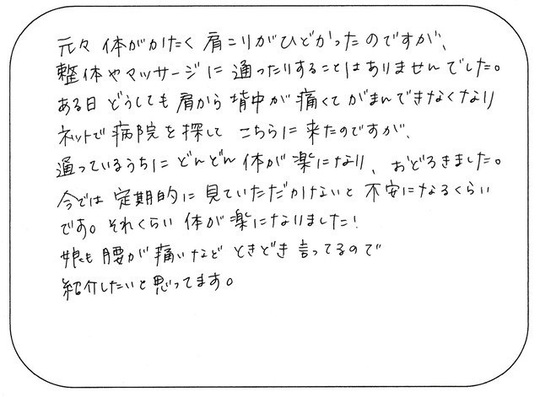 元々 体がかたく 肩こりがひどかったのですが、
整体やマッサージに 通ったりすることはありませんでした。
ある日 どうしても 肩から 背中が 痛くて がまんできなくなり
ネットで 病院を 探して こちらに 来たのですが、
通っているうちに どんどん 体が 楽になり、おどろきました。
今では 定期的に 見ていただかないと 不安になるくらい
です。それくらい 体が 楽になりました!
娘も 腰が 痛いなど ときどき 言ってるので
紹介したいと思ってます。